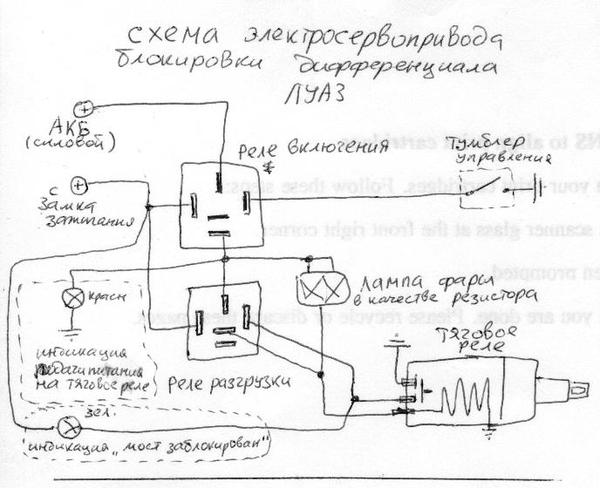 схема электросервопривода
блокировки дифференциала
ЛУАЗ
АКБ
(силовой)
Реле включения
Тумблер
управления
с
замка
зажигания
лампа фары
в качестве резистора
красн
Тяговое
реле
индикация
подачи питания
на тяговое реле
Реле разгрузки
зел.
индикация „мост заблокирован"
cartridges. Follow these steps:
scanner glass at the front right corner
prompted
you are done. Please recycle or discard the